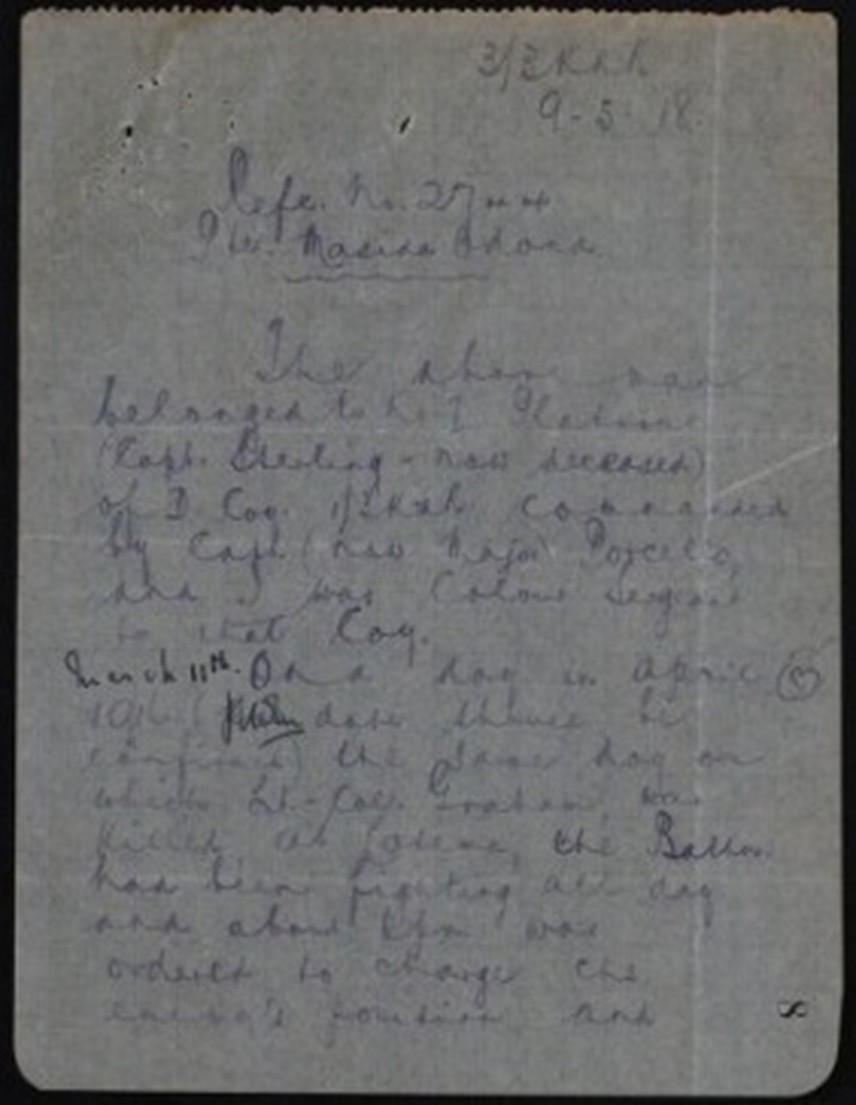 3/3 KAR
9-5-18.
Refe. No. 27
Pte. Masina
The above man
belonged to No I Platoon
(Capt. - now deceased)
of D Coy. 1/2 KAR commanded
by Capt (now Major)
and I was Colour
to that Coy.
March 11th. On a day in April (?)
1916 ( date should be
confirmed) the same day on
which Lt-Col. Graham, was
killed at the Battn.
had been fighting all day
and about was
ordered to charge the
enemy's position and